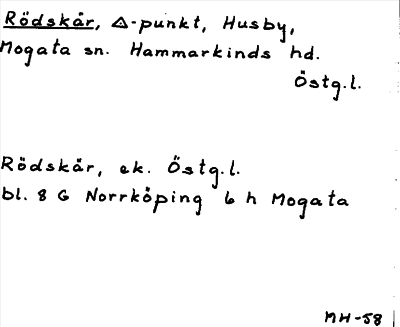 Rödskår, △-punkt, Husby,
Mogata sn. Hammarkinds hd.
Östg.l.
Rödskår, ek. Östg.l.
bl. 8 G Norrköping 6 h Mogata
MH-58